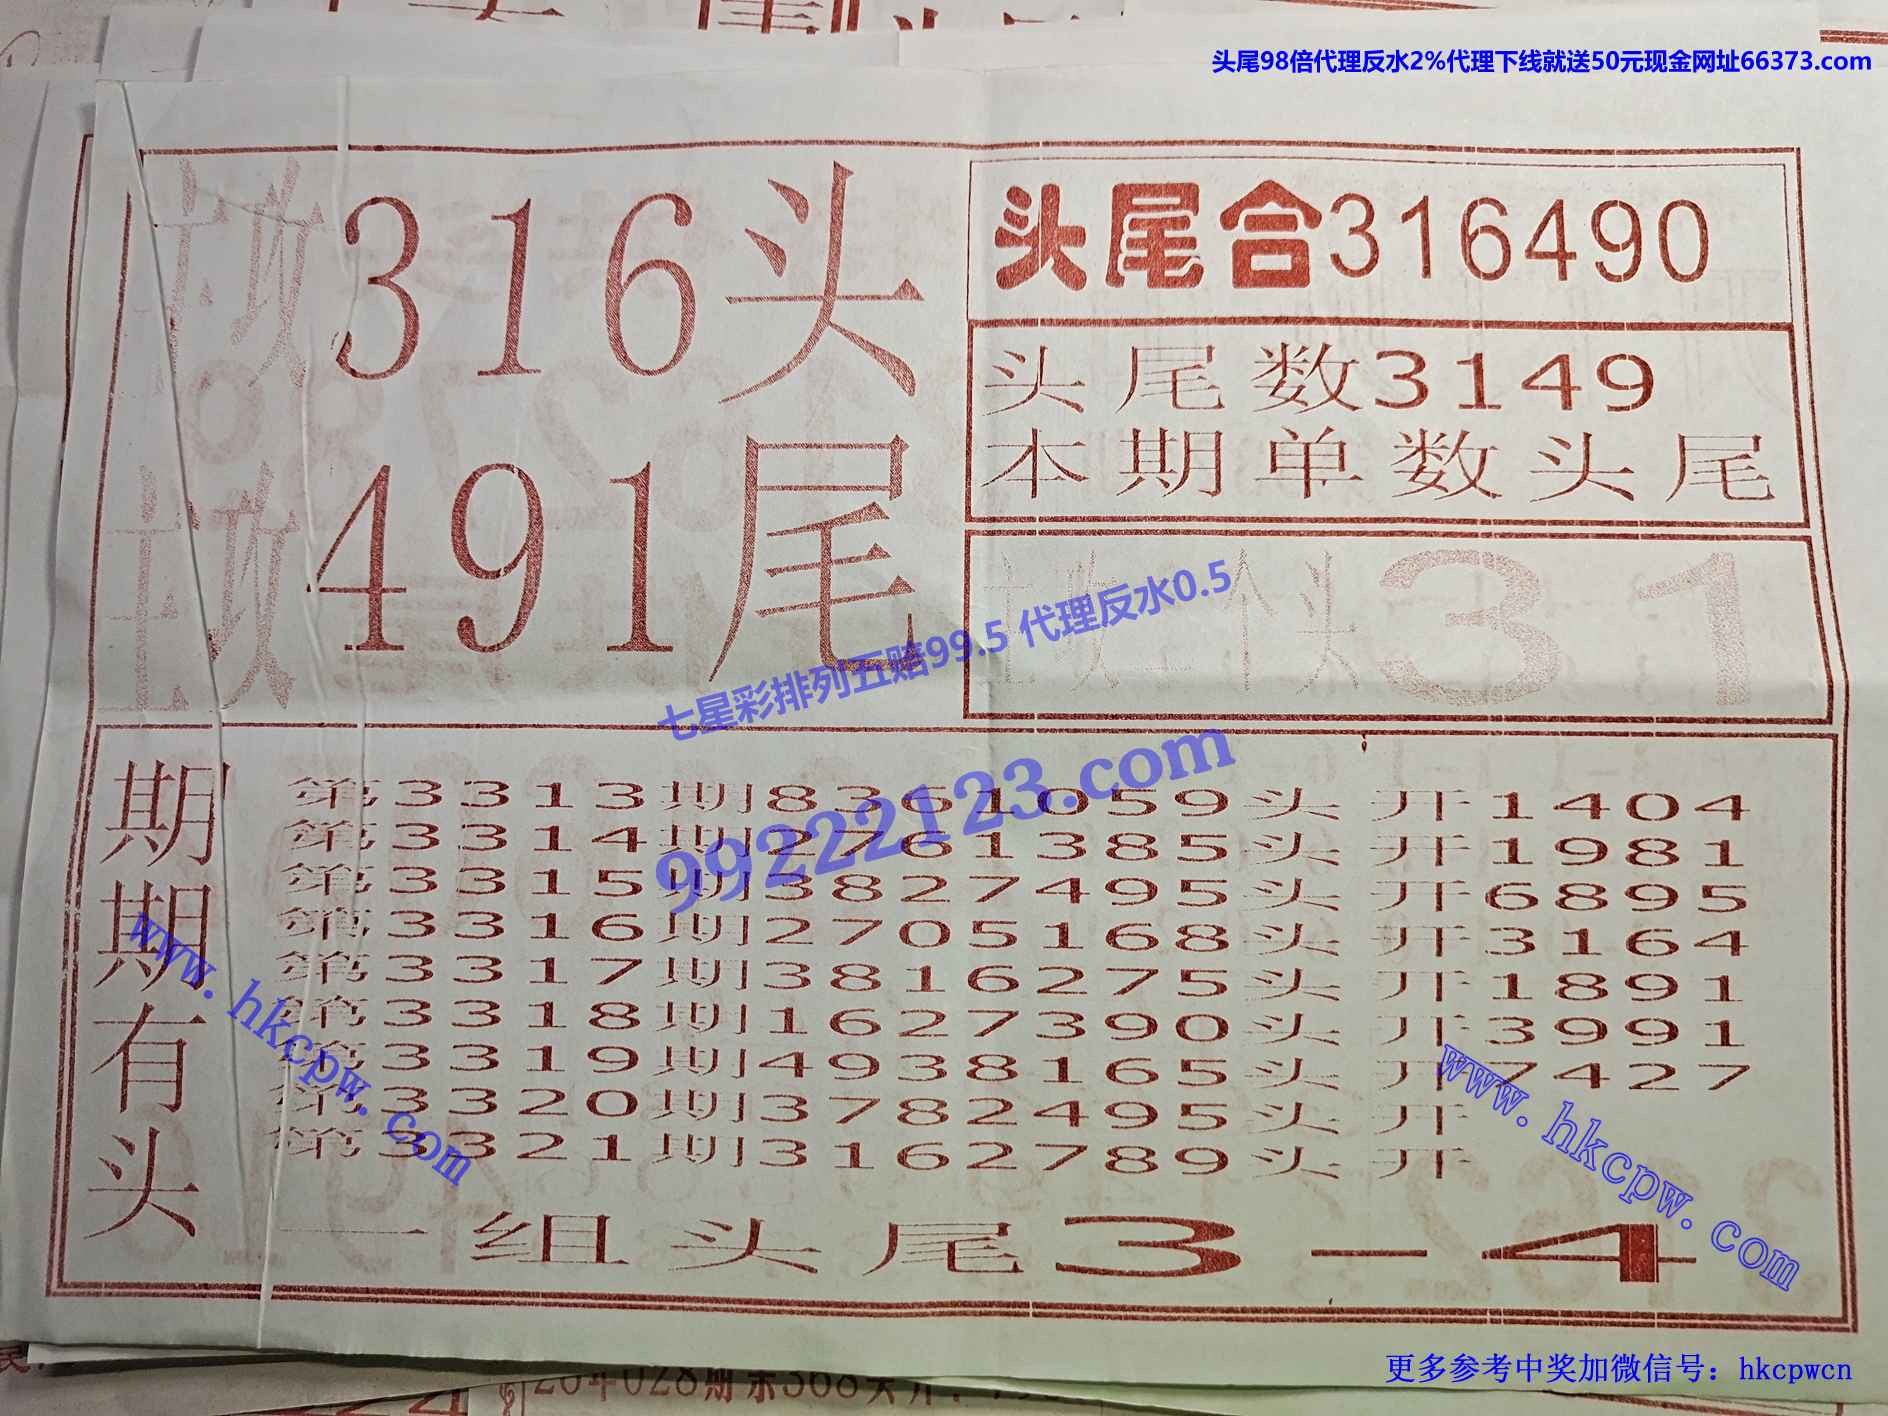 头尾98倍代理反水2%代理下线就送50元现金网址66373.com
主攻316头
主攻491尾
头尾合316490
头尾数3149
本期单数头尾
主攻二个头31
七星彩排列五赔99.5 代理反水0.5
99222123.com
期期有头
第3313期8361059头 开1404
第3314期2761385头 开1981
第3315期3827495头 开6895
第3316期2705168头 开3164
第3317期3816275头 开1891
第3318期1627390头 开3991
第3319期4938165头 开7427
第3320期3782495头 开
第3321期3162789头 开
一组头尾3-4
www.hkcpw.com
www.hkcpw.com
更多参考中奖加微信号：hkcpwcn